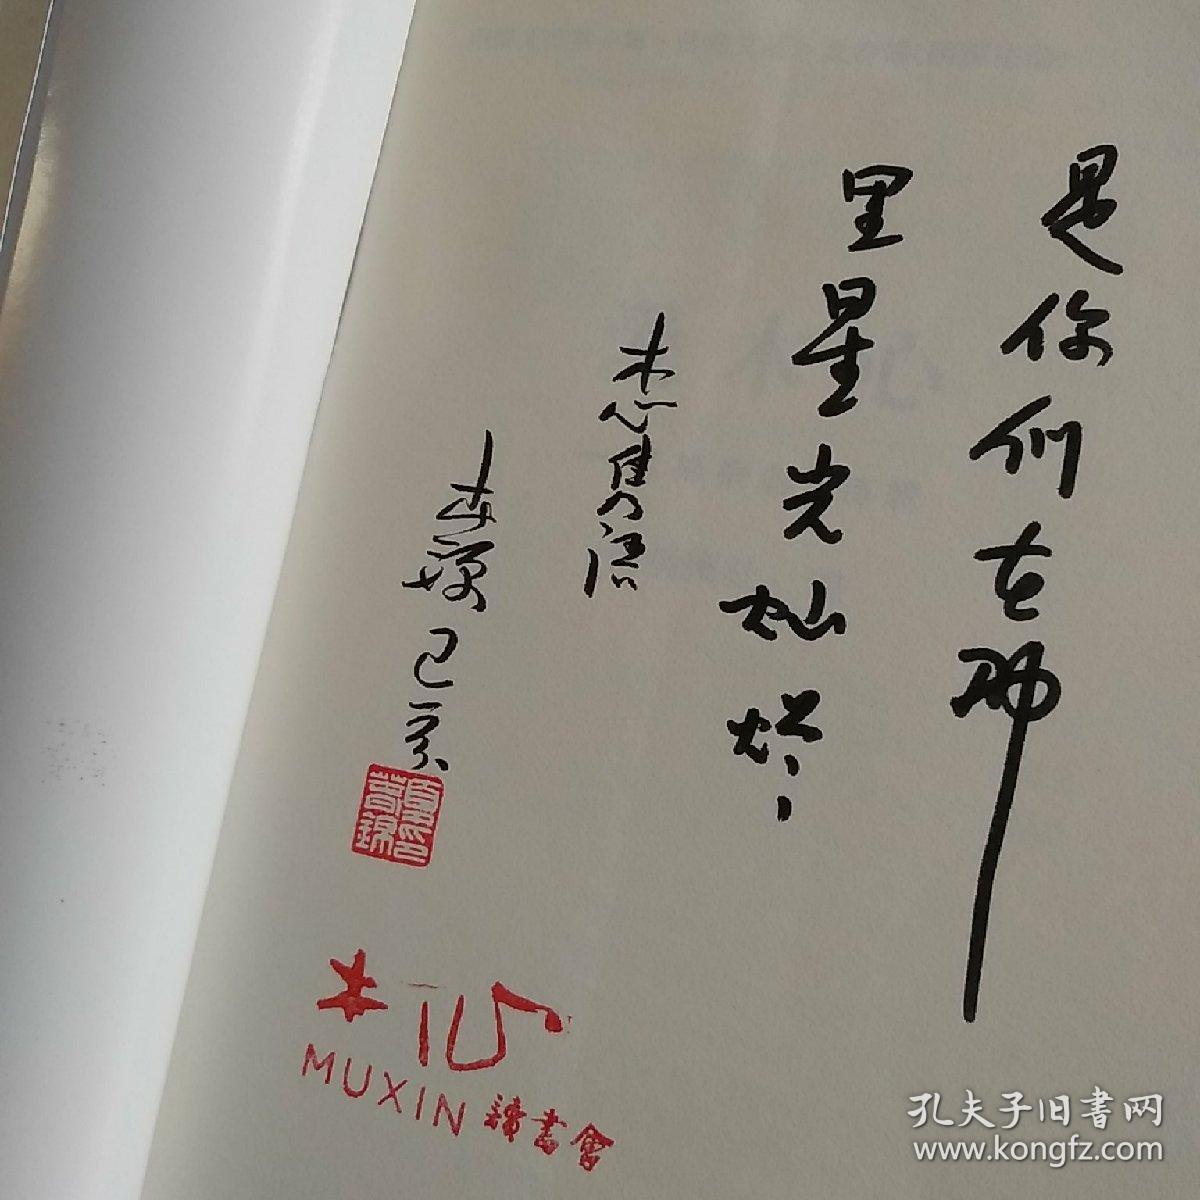 是你们在那
里星光灿烂
木心隽语
春锦 己亥
夏春锦印
木心
MUXIN 讀書會
孔夫子旧书网
www.kongfz.com